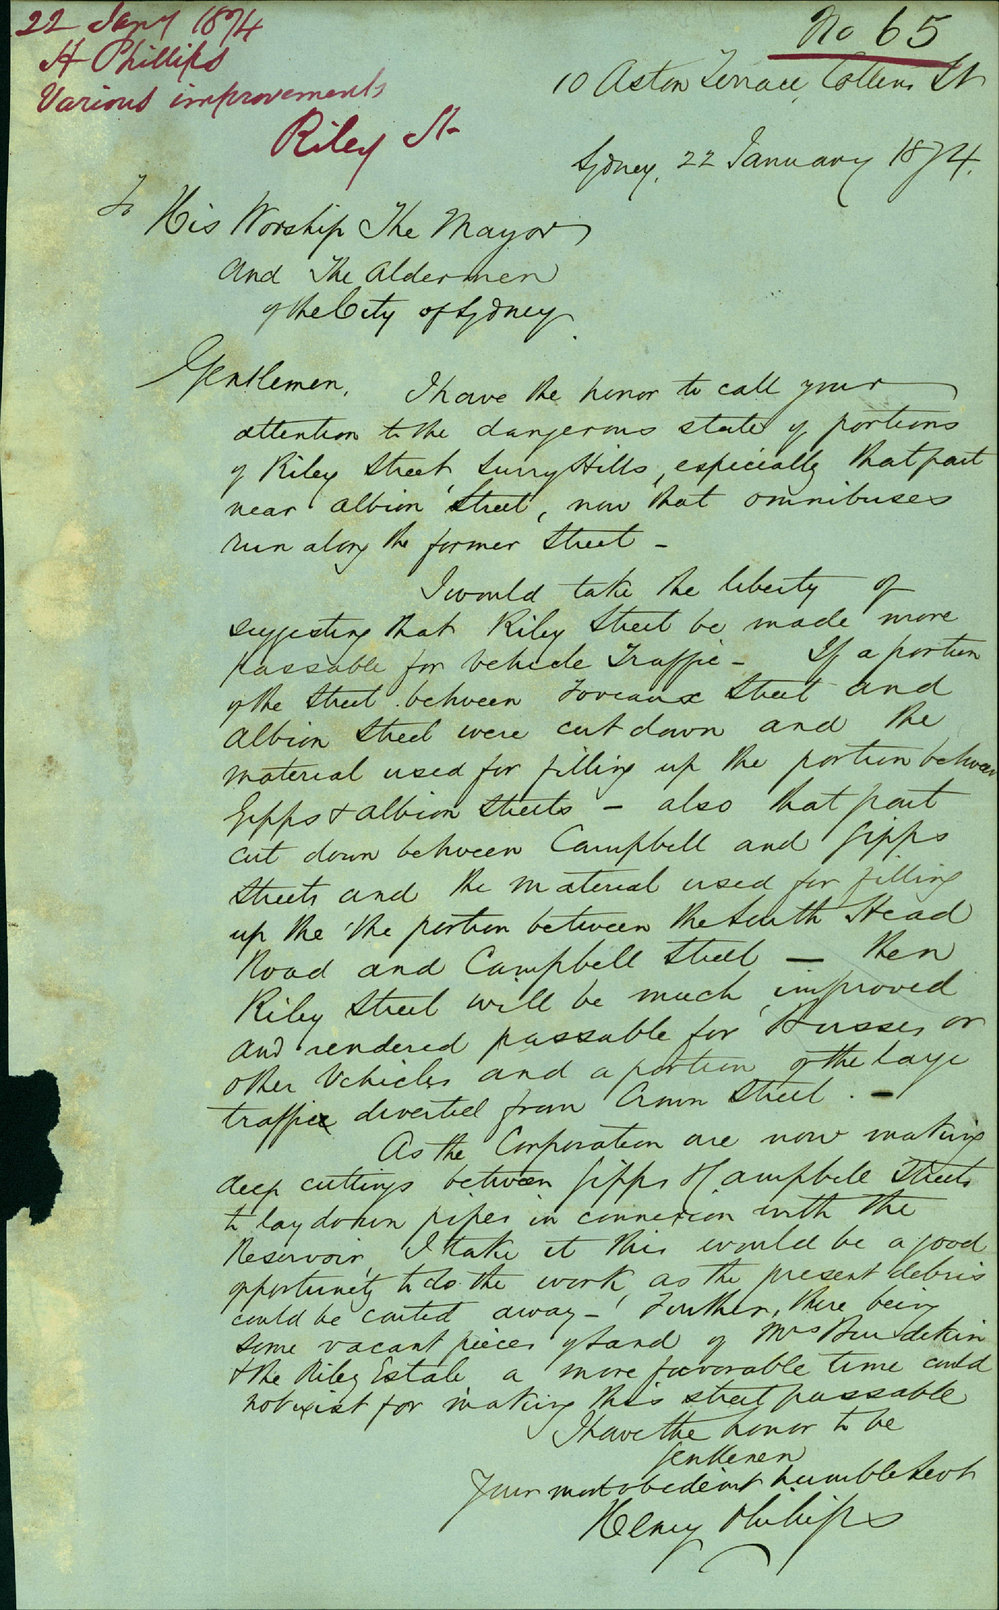 22 Jany 1874
H Phillips
Various improvements
Riley St
No 65
10 Aston Terrace, Collins St
Sydney, 22 January 1874.
To His Worship The Mayor
And The Aldermen
of the City of Sydney.
Gentlemen, I have the honor to call your
attention to the dangerous state of portions
of Riley Street, Surry Hills, especially that part
near Albion Street, now that omnibuses
run along the former Street -
I would take the liberty of
suggesting that Riley Street be made more
passable for Vehicle Traffic - If a portion
of the Street between Foveaux Street and
Albion Street were cut down and the
material used for filling up the portion between
Gipps & Albion Streets - also that part
cut down between Campbell and Gipps
Streets and the material used for filling
up the the portion between the South Head
Road and Campbell Street - then
Riley Street will be much improved
and rendered passable for Busses or
other Vehicles and a portion of the large
traffic diverted from Crown Street. -
As the Corporation are now making
deep cuttings between Gipps & Campbell Streets
to lay down pipes in connexion with the
Reservoir, I take it this would be a good
opportunity to do the work, as the present debris
could be carted away - Further, there being
some vacant pieces of land of Mrs Burdekin
& the Riley Estate a more favorable time could
not exist for making this street passable
I have the honor to be
Gentlemen
Your most obedient humble Servt
Henry Phillips